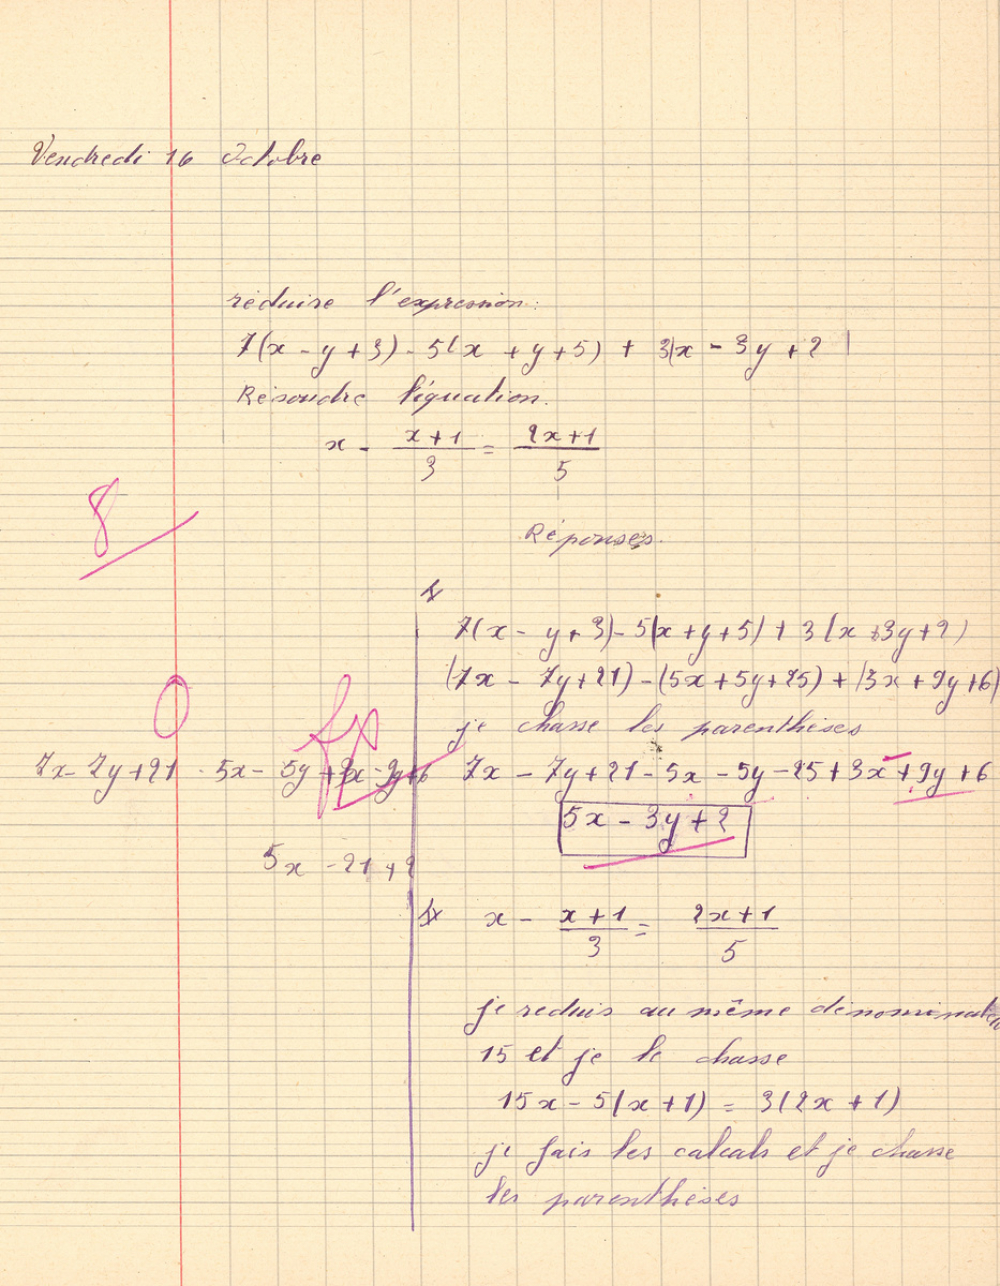 Vendredi 16 Octobre
réduire l'expression:
7(x - y + 3) - 5(x + y + 5) + 3(x - 3y + 2)
Résoudre l'équation.
x - (x+1)/3 = (2x+1)/5
8
Réponses.
I
7(x - y + 3) - 5(x + y + 5) + 3(x + 3y + 2)
(7x - 7y + 21) - (5x + 5y + 25) + (3x + 9y + 6)
je chasse les parenthèses
0
7x - 7y + 21 - 5x - 5y + 3x - 9y + 6
7x - 7y + 21 - 5x - 5y - 25 + 3x + 9y + 6
5x - 3y + 2
5x - 21 + 2
II
x - (x+1)/3 = (2x+1)/5
je reduis au même dénominateu
15 et je le chasse
15x - 5(x + 1) = 3(2x + 1)
je fais les calculs et je chasse
les parenthèses